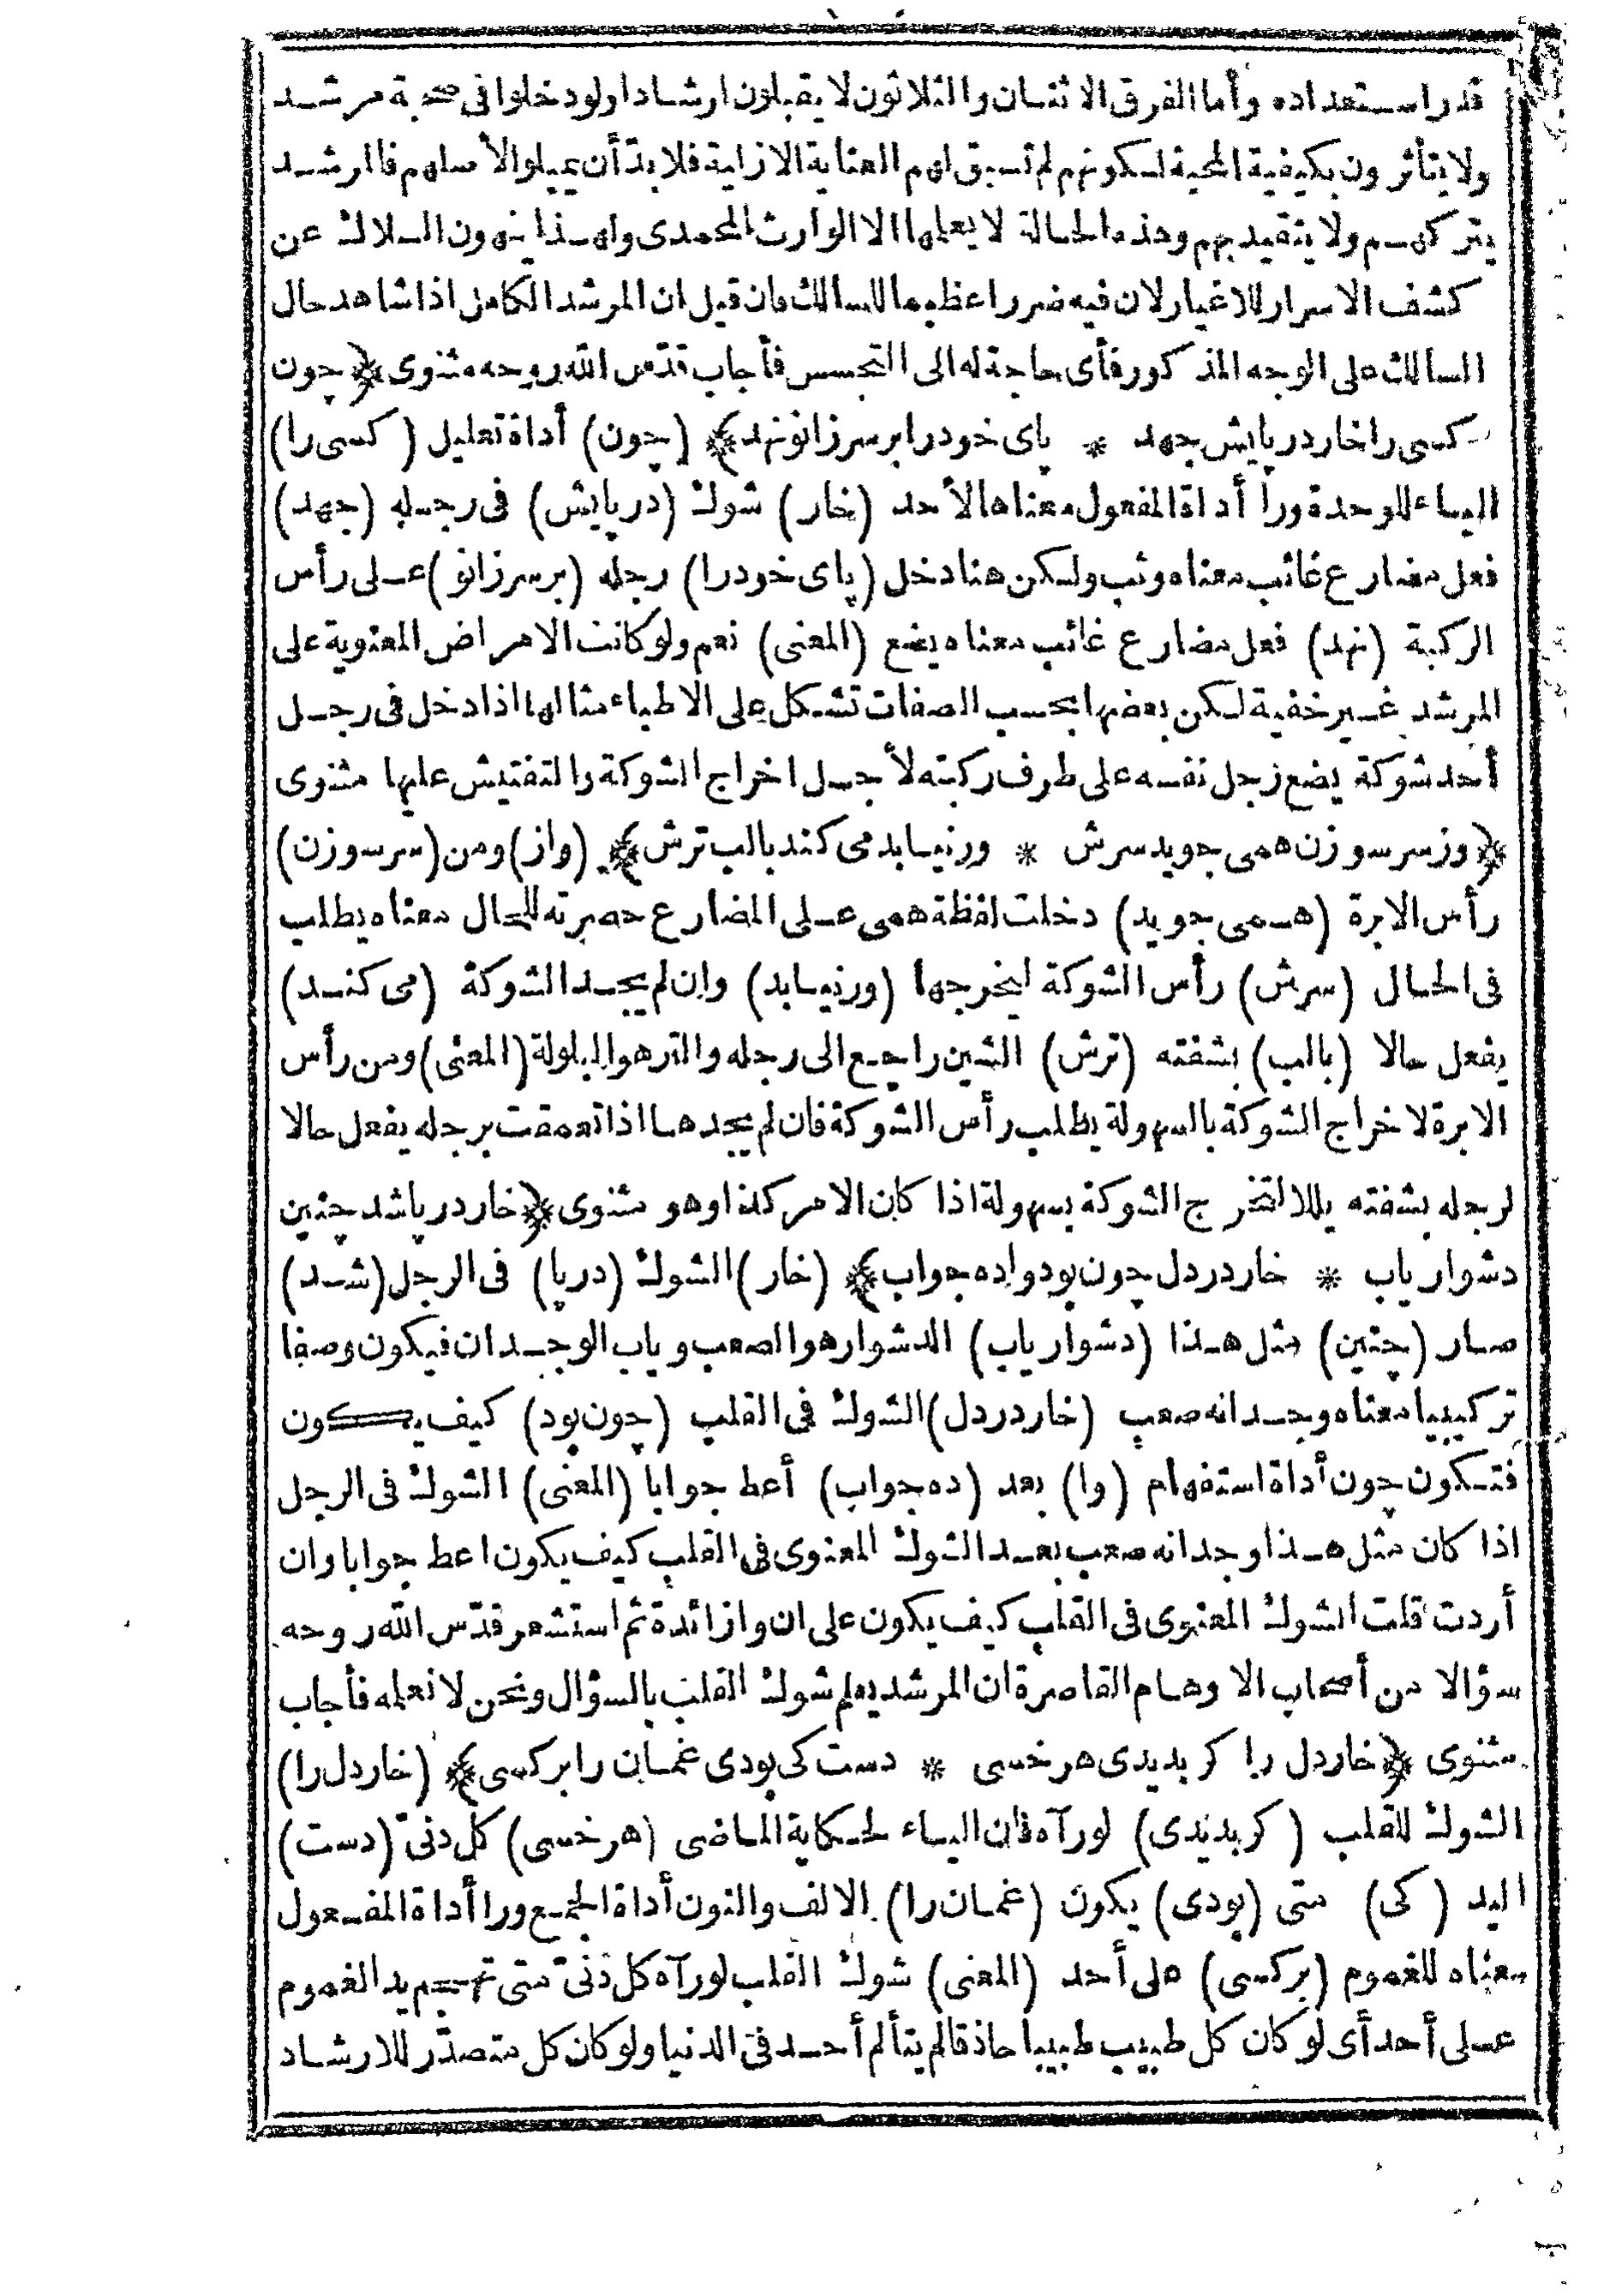 قدر استعداده وأما الفرق الاثنان والثلاثون لا يقبلون ارشادا ولو دخلوا فى صحبة مرشد
ولا يتأثرون بكيفية المحبة لكونهم لم تسبق لهم العناية الازلية فلا بدّ أن يميلوا لأصلهم فالمرشد
يتركهم ولا يتقيد بهم وهذه الحالة لا يعلمها الا الوارث المحمدى ولهذا ينهون السلاك عن
كشف الاسرار للاغيار لان فيه ضررا عظيما للسالك فان قيل ان المرشد الكامل اذا شاهد حال
السالك على الوجه المذكور فأى حاجة له الى التجسس فأجاب قدّس الله روحه مثنوى ﴿چون
كسى را خار در پايش جهد * پاى خود را بر سر زانو نهد﴾ (چون) أداة تعليل (كسى را)
الياء للوحدة ورا أداة المفعول معناه الأحد (خار) شوك (در پايش) فى رجله (جهد)
فعل مضارع غائب معناه وثب ولكن هنا دخل (پاى خود را) رجله (بر سر زانو) على رأس
الركبة (نهد) فعل مضارع غائب معناه يضع (المعنى) نعم ولو كانت الامراض المعنوية على
المرشد غير خفية لكن بعضها بحسب الصفات تشكل على الاطباء مثالها اذا دخل فى رجل
أحد شوكة يضع رجل نفسه على طرف ركبته لأجل اخراج الشوكة والتفتيش عليها مثنوى
﴿وز سر سوزن همى جويد سرش * ور نيابد مى كند با لب ترش﴾ (واز) ومن (سر سوزن)
رأس الابرة (همى جويد) دخلت لفظة همى على المضارع حصرته للحال معناه يطلب
فى الحال (سرش) رأس الشوكة ليخرجها (ور نيابد) وان لم يجد الشوكة (مى كند)
يفعل حالا (با لب) بشفته (ترش) الشين راجع الى رجله والتر هو البلولة (المعنى) ومن رأس
الابرة لاخراج الشوكة بالسهولة يطلب رأس الشوكة فان لم يجدها اذا تعمقت برجله يفعل حالا
لرجله بشفته بللا لتخرج الشوكة بسهولة اذا كان الامر كذا وهو مثنوى ﴿خار در پا شد چنين
دشوار ياب * خار در دل چون بود وا ده جواب﴾ (خار) الشوك (در پا) فى الرجل (شد)
صار (چنين) مثل هذا (دشوار ياب) الدشوار هو الصعب وياب الوجدان فيكون وصفا
تركيبيا معناه وجدانه صعب (خار در دل) الشوك فى القلب (چون بود) كيف يكون
فتكون چون أداة استفهام (وا) بعد (ده جواب) أعط جوابا (المعنى) الشوك فى الرجل
اذا كان مثل هذا وجدانه صعب بعد الشوك المعنوى فى القلب كيف يكون اعط جوابا وان
أردت قلت الشوك المعنوى فى القلب كيف يكون على ان وا زائدة ثم استشعر قدّس الله روحه
سؤالا من أصحاب الاوهام القاصرة ان المرشد يعلم شوك القلب بالسؤال ونحن لا نعلمه فأجاب
مثنوى ﴿خار دل را كر بديدى هر خسى * دست كى بودى غمان را بر كسى﴾ (خار دل را)
الشوك للقلب (كر بديدى) لو رآه فان الياء لحكاية الماضى (هر خسى) كل دنىّ (دست)
اليد (كى) متى (بودى) يكون (غمان را) الالف والنون أداة الجمع ورا أداة المفعول
معناه للغموم (بر كسى) على أحد (المعنى) شوك القلب لو رآه كل دنىّ متى يد الغموم
على أحد أى لو كان كل طبيب طبيبا حاذقا لم يتألم أحد فى الدنيا ولو كان كل متصدّر للارشاد